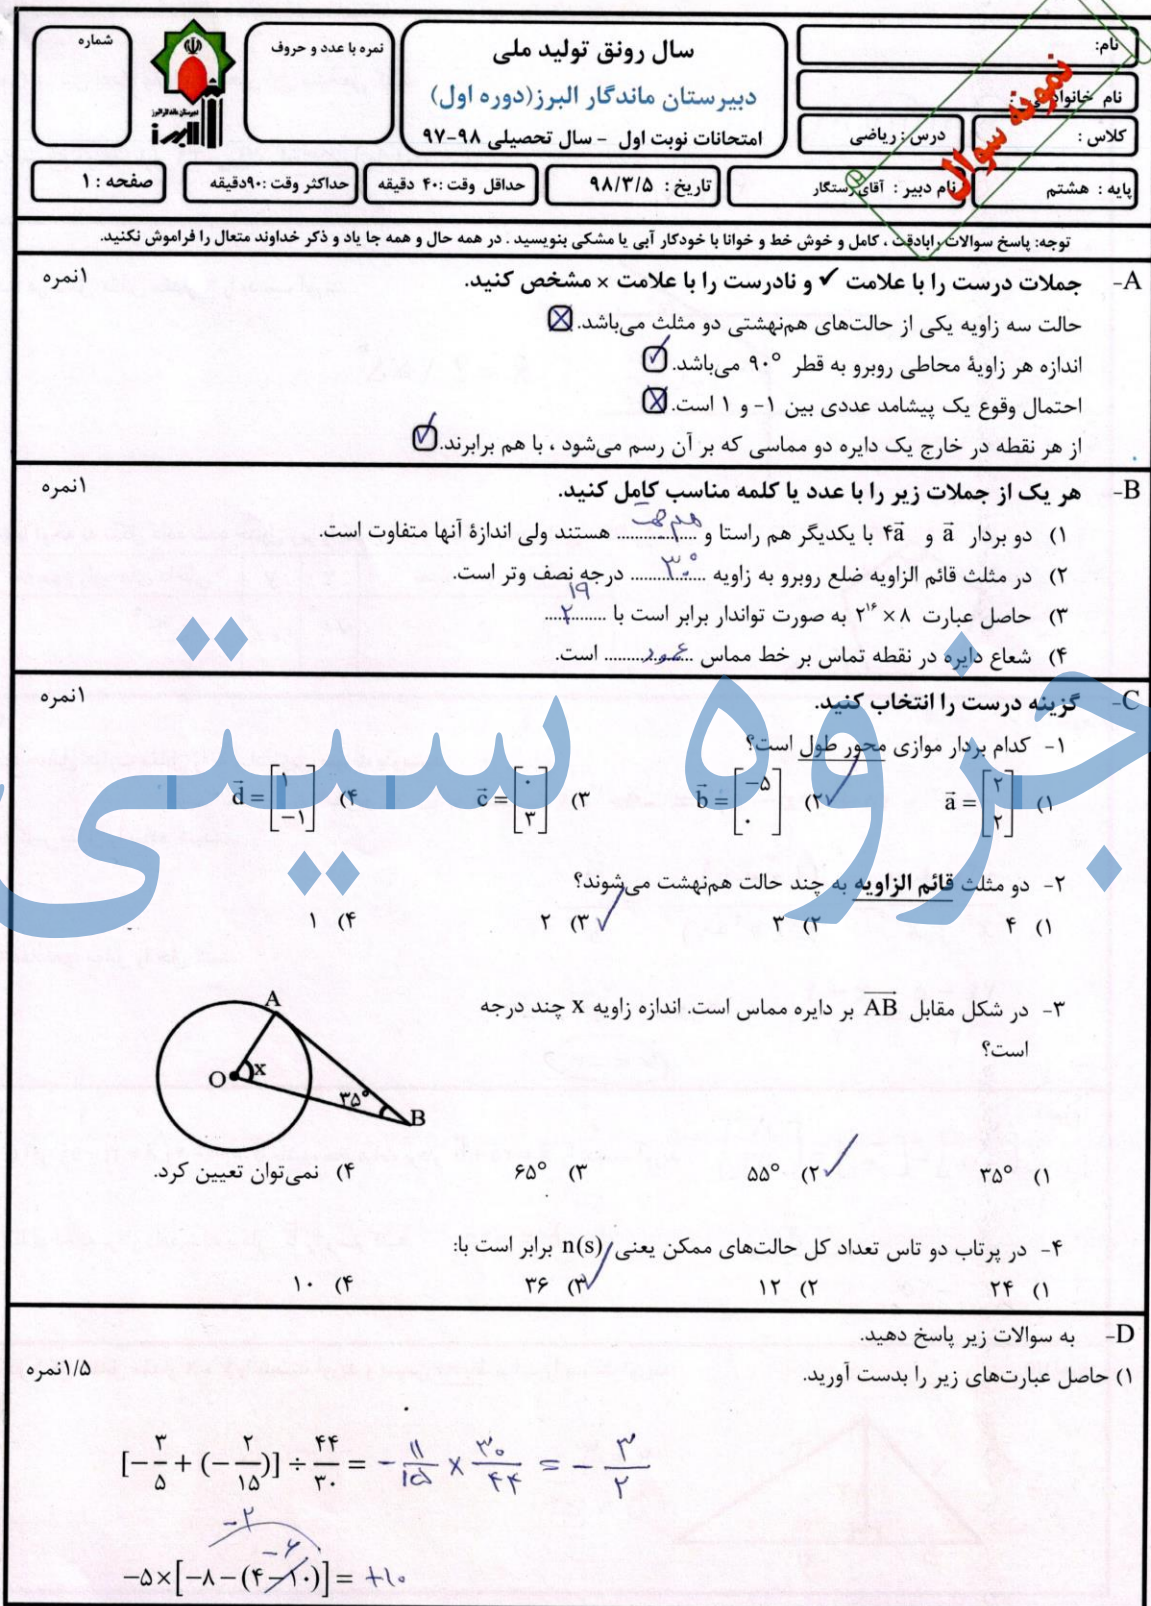 نام:
نام خانوادگی :
کلاس :
درس : ریاضی
پایه : هشتم
نام دبیر : آقای رستگار
نمونه سوال
سال رونق تولید ملی
دبیرستان ماندگار البرز(دوره اول)
امتحانات نوبت اول - سال تحصیلی ۹۸-۹۷
نمره با عدد و حروف
شماره
تاریخ : ۹۸/۳/۵
حداقل وقت :۴۰ دقیقه
حداکثر وقت :۹۰دقیقه
صفحه : ۱
توجه: پاسخ سوالات رابادقت ، کامل و خوش خط و خوانا با خودکار آبی یا مشکی بنویسید . در همه حال و همه جا یاد و ذکر خداوند متعال را فراموش نکنید.
A- جملات درست را با علامت ✓ و نادرست را با علامت × مشخص کنید. ۱نمره
حالت سه زاویه یکی از حالت‌های هم‌نهشتی دو مثلث می‌باشد. ☒
اندازه هر زاویهٔ محاطی روبرو به قطر ۹۰° می‌باشد. ☑
احتمال وقوع یک پیشامد عددی بین ۱- و ۱ است. ☒
از هر نقطه در خارج یک دایره دو مماسی که بر آن رسم می‌شود ، با هم برابرند. ☑
B- هر یک از جملات زیر را با عدد یا کلمه مناسب کامل کنید. ۱نمره
۱) دو بردار a⃗ و ۴a⃗ با یکدیگر هم راستا و هم جهت هستند ولی اندازهٔ آنها متفاوت است.
۲) در مثلث قائم الزاویه ضلع روبرو به زاویه ۳۰° درجه نصف وتر است.
۳) حاصل عبارت ۲^۱۶ × ۸ به صورت تواندار برابر است با ۲^۱۹
۴) شعاع دایره در نقطه تماس بر خط مماس عمود است.
C- گزینه درست را انتخاب کنید. ۱نمره
۱- کدام بردار موازی محور طول است؟
۱) a⃗ = [۲ ۲] ۲) ✓ b⃗ = [−۵ ۰] ۳) c⃗ = [۰ ۳] ۴) d⃗ = [۱ −۱]
۲- دو مثلث قائم الزاویه به چند حالت هم‌نهشت می‌شوند؟
۱) ۴ ۲) ۳ ۳) ✓ ۲ ۴) ۱
۳- در شکل مقابل AB بر دایره مماس است. اندازه زاویه x چند درجه
است؟
A
O x
۳۵°
B
۱) ۳۵° ۲) ✓ ۵۵° ۳) ۶۵° ۴) نمی‌توان تعیین کرد.
۴- در پرتاب دو تاس تعداد کل حالت‌های ممکن یعنی n(s) برابر است با:
۱) ۲۴ ۲) ۱۲ ۳) ✓ ۳۶ ۴) ۱۰
D- به سوالات زیر پاسخ دهید.
۱) حاصل عبارت‌های زیر را بدست آورید. ۱/۵نمره
[−۳/۵ + (−۲/۱۵)] ÷ ۴۴/۳۰ = −۱۱/۱۵ × ۳۰/۴۴ = −۳/۲
−۲
−۶
−۵×[−۸−(۴−۱۰)] = +۱۰
جزوه سیتی